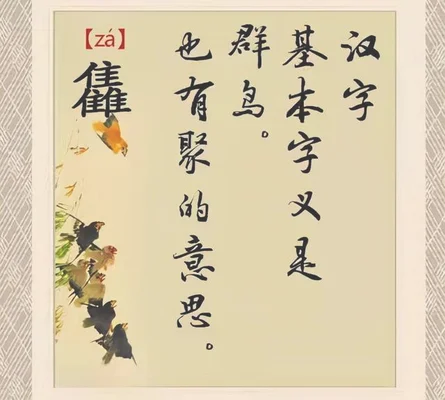 汉字
基本字义是
群鸟。
也有聚的意思。
【zá】
雥